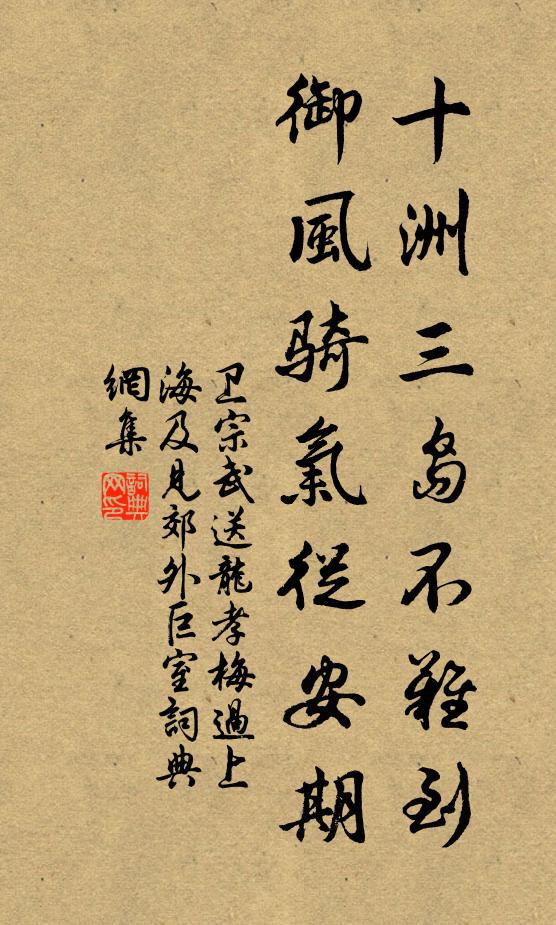 十洲三岛不難到
御風騎氣從安期
卫宗武送龍孝梅過上
海及見郊外巨室詞典
網集
詞典
网印